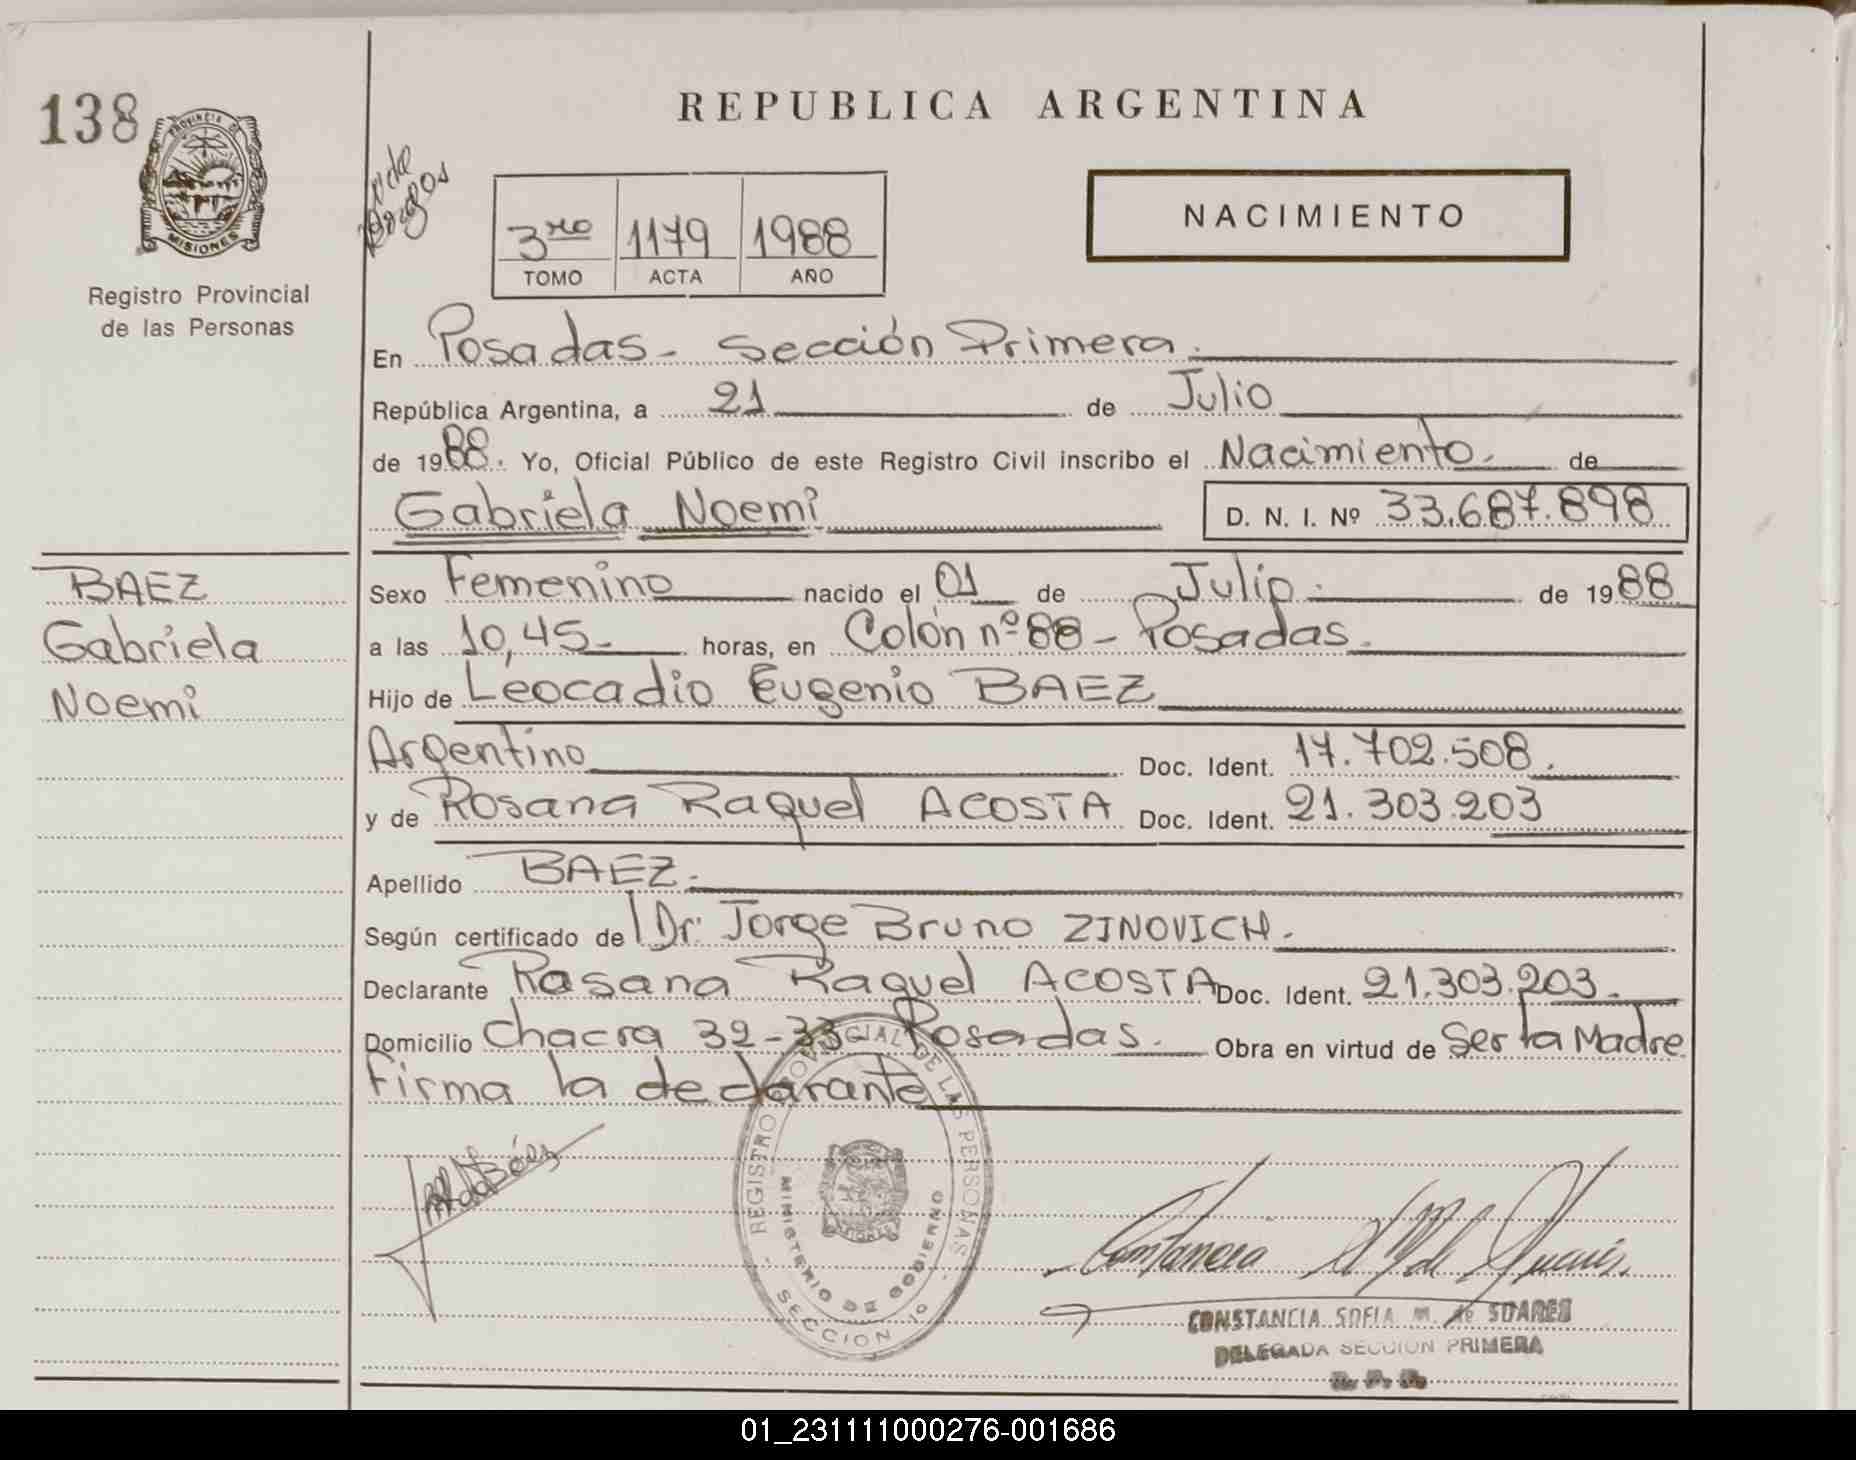 138
PROVINCIA DE
MISIONES
Registro Provincial
de las Personas
REPUBLICA ARGENTINA
3ro 1179 1988
TOMO ACTA AÑO
NACIMIENTO
En Posadas - Sección Primera.
República Argentina, a 21 de Julio
de 1988. Yo, Oficial Público de este Registro Civil inscribo el Nacimiento. de
Gabriela Noemi D. N. I. Nº 33.687.898
BAEZ
Gabriela
Noemi
Sexo Femenino nacido el 01 de Julio. de 1988
a las 10,45- horas, en Colón nº 88 - Posadas.
Hijo de Leocadio Eugenio BAEZ
Argentino Doc. Ident. 17.702.508.
y de Rosana Raquel ACOSTA Doc. Ident. 21.303.203
Apellido BAEZ.
Según certificado de Dr. Jorge Bruno ZINOVICH.
Declarante Rosana Raquel ACOSTA Doc. Ident. 21.303.203.
Domicilio Chacra 32-33 Posadas. Obra en virtud de Ser la Madre
Firma la declarante
REGISTRO PROVINCIAL DE LAS PERSONAS
MINISTERIO DE GOBIERNO
SECCION 1º
CONSTANCIA SOFIA M. de SUAREZ
DELEGADA SECCION PRIMERA
R. P. P.
01_231111000276-001686